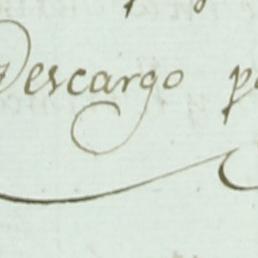 Descargo p